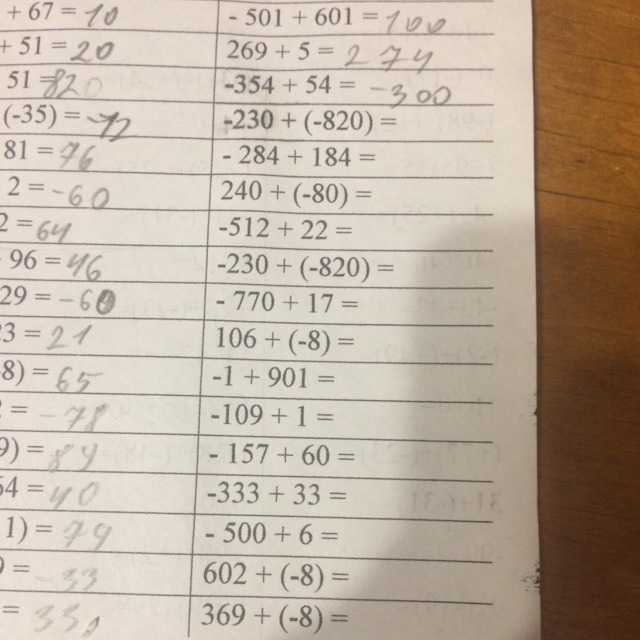 + 67 = 10 - 501 + 601 = 100
+ 51 = 20 269 + 5 = 274
51 = 820 -354 + 54 = -300
(-35) = -12 -230 + (-820) =
81 = 76 - 284 + 184 =
2 = -60 240 + (-80) =
2 = 64 -512 + 22 =
96 = 46 -230 + (-820) =
29 = -60 - 770 + 17 =
23 = 21 106 + (-8) =
8) = 65 -1 + 901 =
= -78 -109 + 1 =
9) = 84 - 157 + 60 =
54 = 40 -333 + 33 =
1) = 74 - 500 + 6 =
= -33 602 + (-8) =
= 33 369 + (-8) =